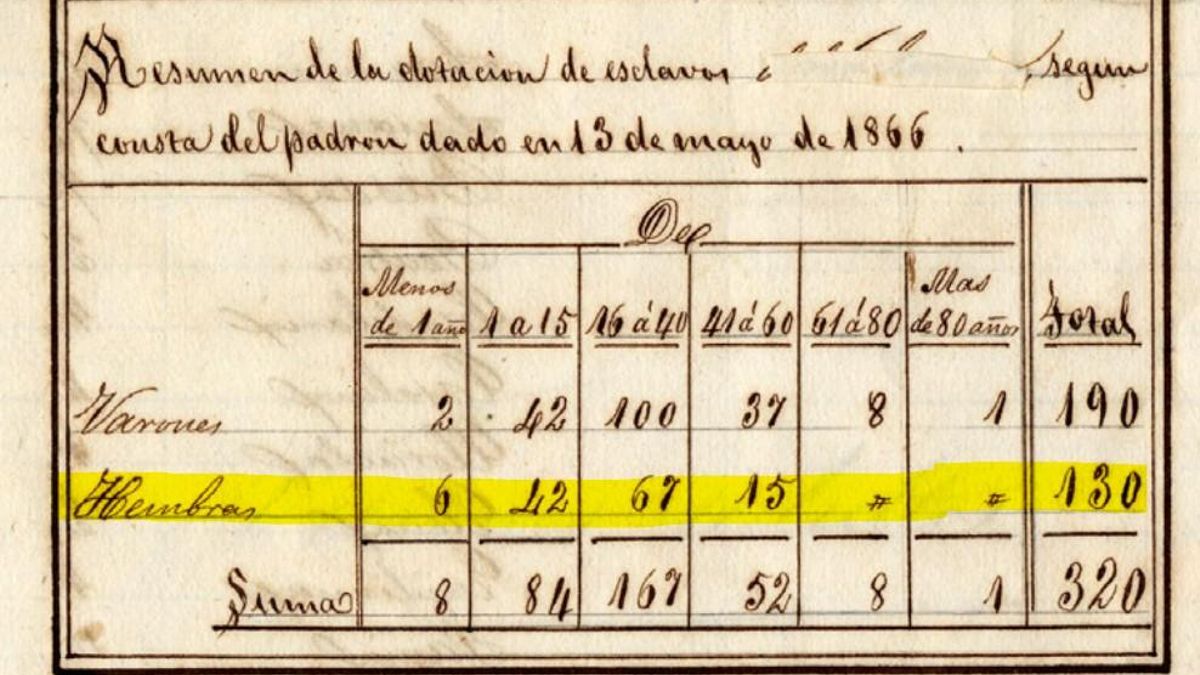 Resumen de la dotacion de esclavos segun
consta del padron dado en 13 de mayo de 1866.
De
Menos de 1 año 1 a 15 16 á 40 41 á 60 61 á 80 Mas de 80 años Total
Varones 2 42 100 37 8 1 190
Hembras 6 42 67 15 " " 130
Suma 8 84 167 52 8 1 320